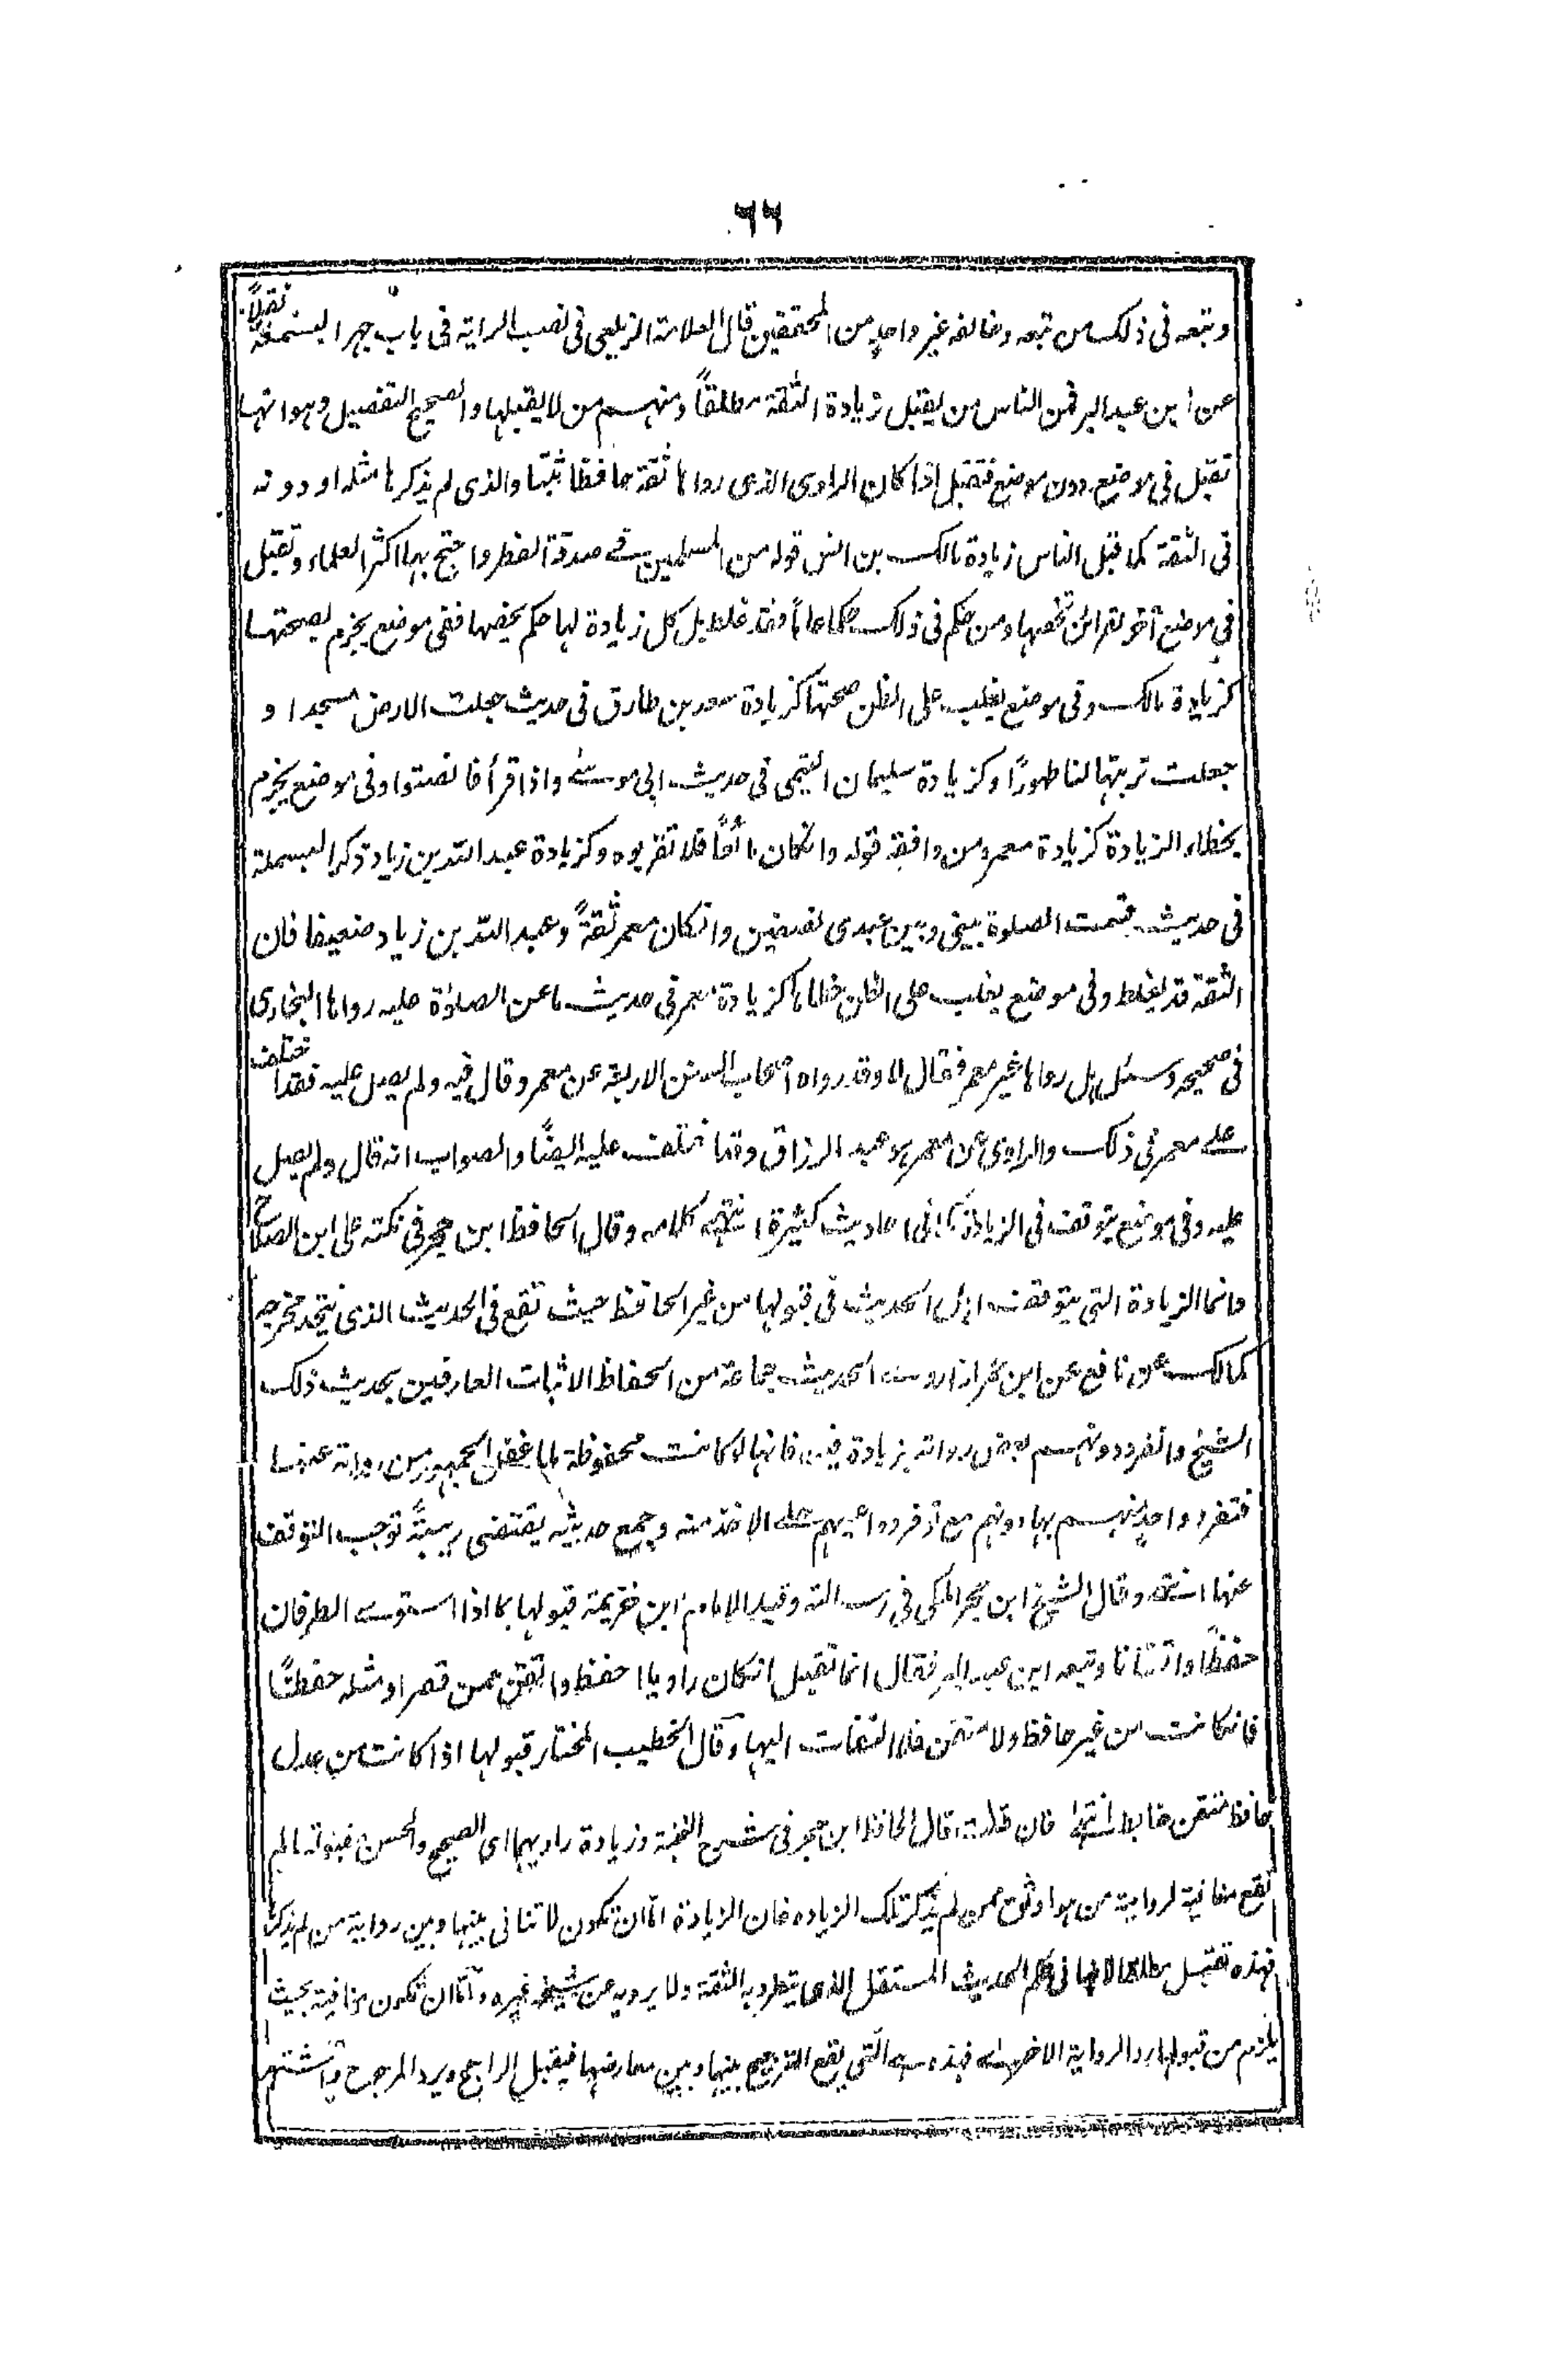 ٦٦
وتبعه فى ذلك من تبعه وخالفه غير واحد من المحققين قال العلامة الزيلعى فى نصب الراية فى باب جهر البسملة نقلاً
عن ابن عبد البر فمن الناس من يقبل زيادة الثقة مطلقاً ومنهم من لا يقبلها والصحيح التفصيل وهو انها
تقبل فى موضع دون موضع فتقبل اذا كان الراوى الذى رواها ثقة حافظا ثبتا والذى لم يذكرها مثله او دونه
فى الثقة كما قبل الناس زيادة مالك بن انس قوله من المسلمين فى صدقة الفطر واحتج بها اكثر العلماء وتقبل
فى موضع آخر لقرائن تخصها ومن حكم فى ذلك حكما عاماً فقد غلط بل كل زيادة لها حكم يخصها ففى موضع يجزم بصحتها
كزيادة مالك وفى موضع يغلب على الظن صحتها كزيادة سعد بن طارق فى حديث جعلت الارض مسجدا و
جعلت تربتها لنا طهورًا وكزيادة سليمان التيمى فى حديث ابى موسى واذا قرأ فانصتوا وفى موضع يجزم
بخطاء الزيادة كزيادة معمر ومن وافقه قوله وانكان مائعًا فلا تقربوه وكزيادة عبد الله بن زياد ذكر البسملة
فى حديث قسمت الصلوة بينى وبين عبدى نصفين وانكان معمر ثقةً وعبد الله بن زياد ضعيفا فان
الثقة قد يغلط وفى موضع يغلب على الظن خطاها كزيادة معمر فى حديث ماعز الصلوٰة عليه رواها البخارى
فى صحيحه وسئل هل رواها غير معمر فقال لا وقد رواه اصحاب السنن الاربعة عن معمر وقال فيه ولم يصل عليه فقد اختلف
على معمر فى ذلك والراوى عن معمر هو عبد الرزاق وقد اختلف عليه ايضًا والصواب انه قال ولم يصل
عليه وفى موضع يتوقف فى الزيادة كما فى احاديث كثيرة انتهى كلامه وقال الحافظ ابن حجر فى نكته على ابن الصلاح
وانما الزيادة التى يتوقف اهل الحديث فى قبولها من غير الحافظ حيث تقع فى الحديث الذى يتحد مخرجه
كمالك عن نافع عن ابن عمر اذا روى الحديث جماعة من الحفاظ الاثبات العارفين بحديث ذلك
الشيخ وانفرد دونهم بعض رواته بزيادة فيه فانها لو كانت محفوظة لما غفل الجمهور من رواته عنها
فتفرد واحد منهم بها دونهم مع توفر دواعيهم على الاخذ منه وجمع حديثه يقتضى ريبةً توجب التوقف
عنها انتهى وقال الشيخ ابن حجر المكى فى رسالته وقيد الامام ابن خزيمة قبولها بما اذا استوى الطرفان
حفظًا واتقانا وتبعه ابن عبد البر فقال انما تقبل انكان راويها احفظ واتقن ممن قصر او مثله حفظًا
فانكانت من غير حافظ ولا متقن فلا التفات اليها وقال الخطيب المختار قبولها اذا كانت من عدل
حافظ متقن ضابط انتهى فان قلت قال الحافظ ابن حجر فى شرح النخبة وزيادة راويهما اى الصحيح والحسن مقبولة مالم
تقع منافية لرواية من هو اوثق ممن لم يذكر تلك الزيادة فان الزيادة اما ان تكون لا تنافى بينها وبين رواية من لم يذكرها
فهذه تقبل مطلقا لانها فى حكم الحديث المستقل الذى يتفرد به الثقة ولا يرويه عن شيخه غيره واما ان تكون منافية بحيث
يلزم من قبولها رد الرواية الاخرى فهذه هى التى يقع الترجيح بينها وبين معارضها فيقبل الراجح ويرد المرجوح واشتهر